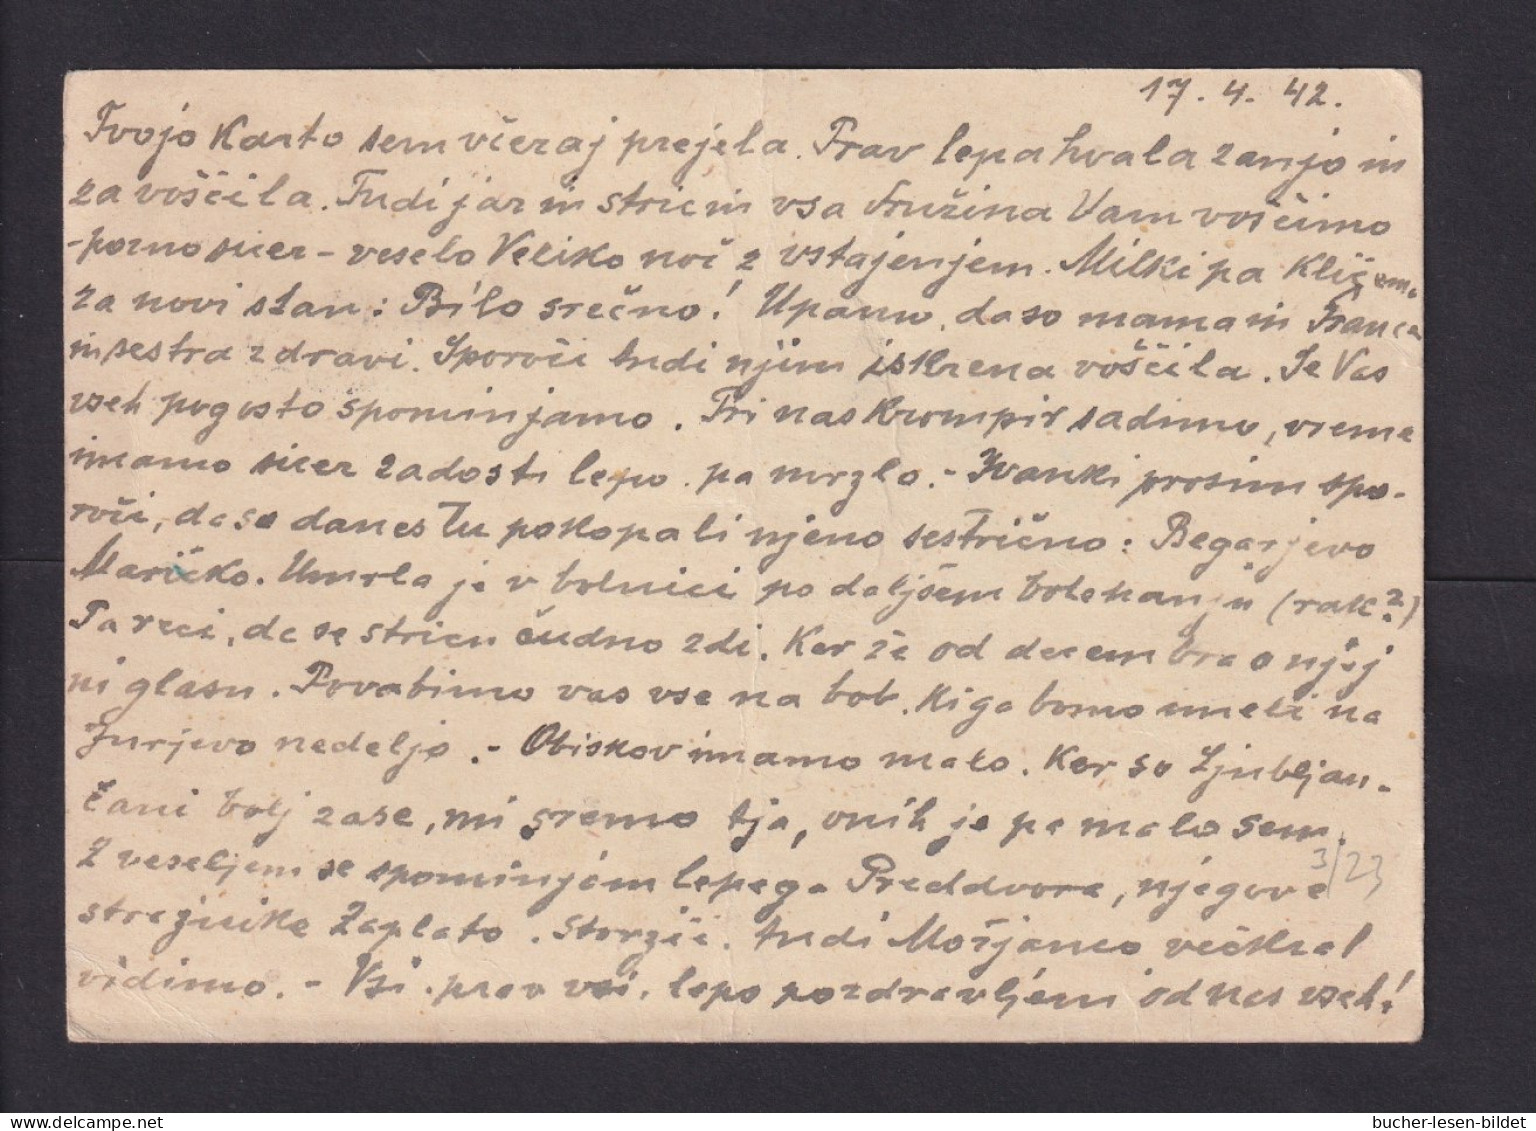 17. 4. 42.
Tvojo karto sem včeraj prejela. Prav lepa hvala zanjo in
za voščila. Tudi jaz in stric in vsa družina Vam voščimo
- pozno sicer - veselo Veliko noč z vstajenjem. Milki pa kličem
za novi stan: Bilo srečno! Upamo, da so mama in Franca
in sestra zdravi. Sporoči tudi njim iskrena voščila. Se Vas
vseh pogosto spominjamo. Pri nas krompir sadimo, vreme
imamo sicer zadosti lepo, pa mrzlo. - Ivanki prosim spo-
roči, da so danes tu pokopali njeno sestrično: Begarjevo
Maričko. Umrla je v bolnici po daljšem bolehanju (rak?)
Pa reci, da se stricu čudno zdi. Ker že od decembra o njej
ni glasu. Povabimo vas vse na bob. Ki ga bomo imeli na
Jurjevo nedeljo. - Obiskov imamo malo. Ker so Ljubljan-
čani bolj zase, mi gremo tja, onih je pa malo sem.
Z veseljem se spominjam lepega Preddvora, njegove
3/23
stražnike Zaplato. Storžič. tudi Možjanco večkrat
vidimo. - Vsi. prav vsi. lepo pozdravljeni od nas vseh!
bucher-lesen-bildet